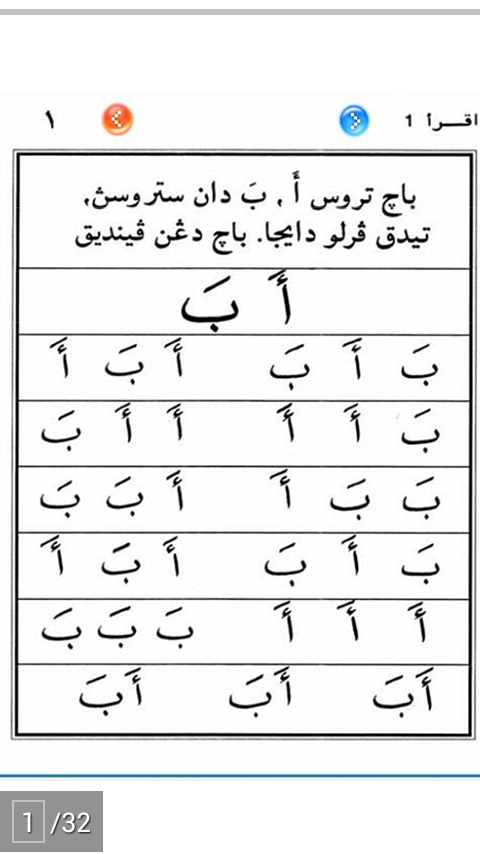 اقـــرأ 1 ١
باچ تروس أَ , بَ دان ستروسڽ,
تيدق ڤرلو دايجا. باچ دڠن ڤينديق
أَ بَ
بَ أَ بَ أَ بَ أَ
بَ أَ أَ أَ أَ بَ
بَ بَ أَ أَ بَ بَ
بَ أَ بَ أَ بَ أَ
أَ أَ أَ بَ بَ بَ
أَبَ أَبَ أَبَ
1 /32